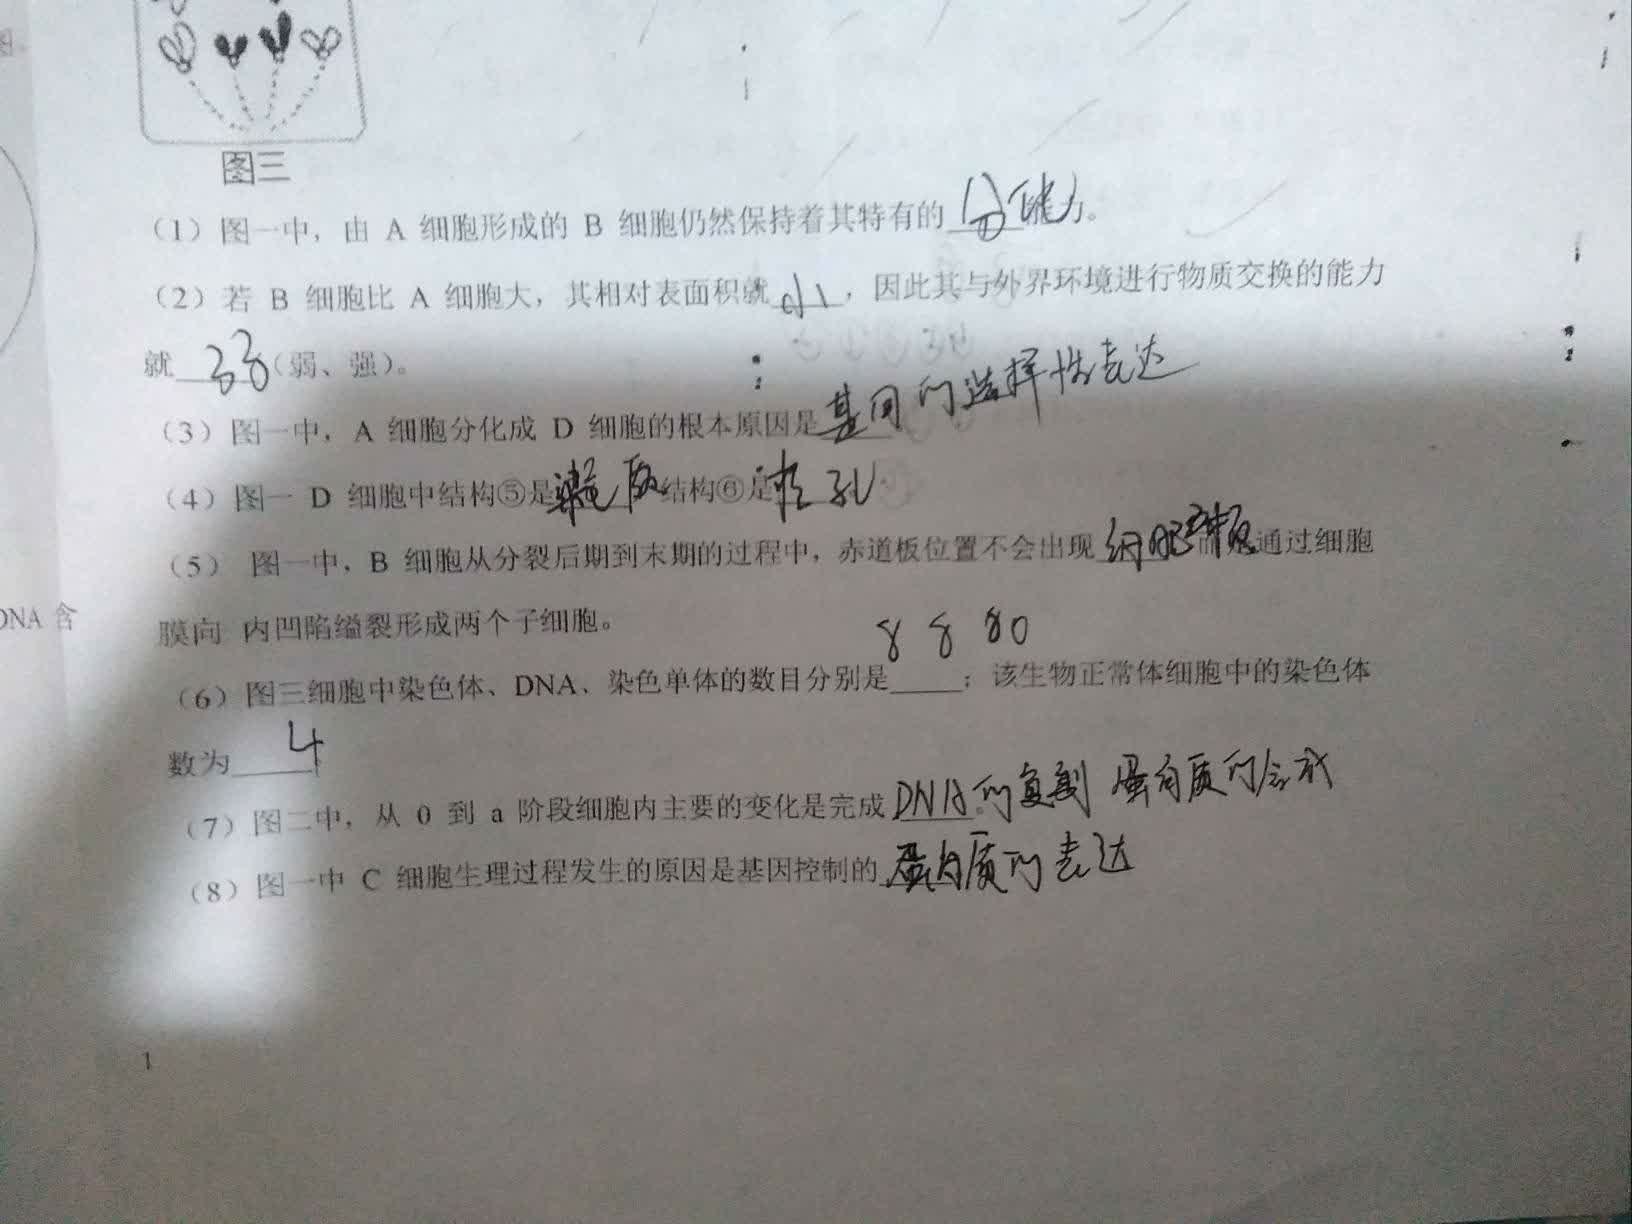 图三
(1) 图一中，由 A 细胞形成的 B 细胞仍然保持着其特有的 能力。
(2) 若 B 细胞比 A 细胞大，其相对表面积就 小，因此其与外界环境进行物质交换的能力
就 弱 (弱、强)。
(3) 图一中，A 细胞分化成 D 细胞的根本原因是 基因的选择性表达
(4) 图一 D 细胞中结构⑤是 染色质 结构⑥是 核孔
(5) 图一中，B 细胞从分裂后期到末期的过程中，赤道板位置不会出现 细胞板 而是通过细胞
DNA 含
膜向 内凹陷缢裂形成两个子细胞。
8 8 0
(6) 图三细胞中染色体、DNA、染色单体的数目分别是____；该生物正常体细胞中的染色体
数为 4
(7) 图二中，从 0 到 a 阶段细胞内主要的变化是完成 DNA的复制 蛋白质的合成
(8) 图一中 C 细胞生理过程发生的原因是基因控制的 蛋白质的表达
1